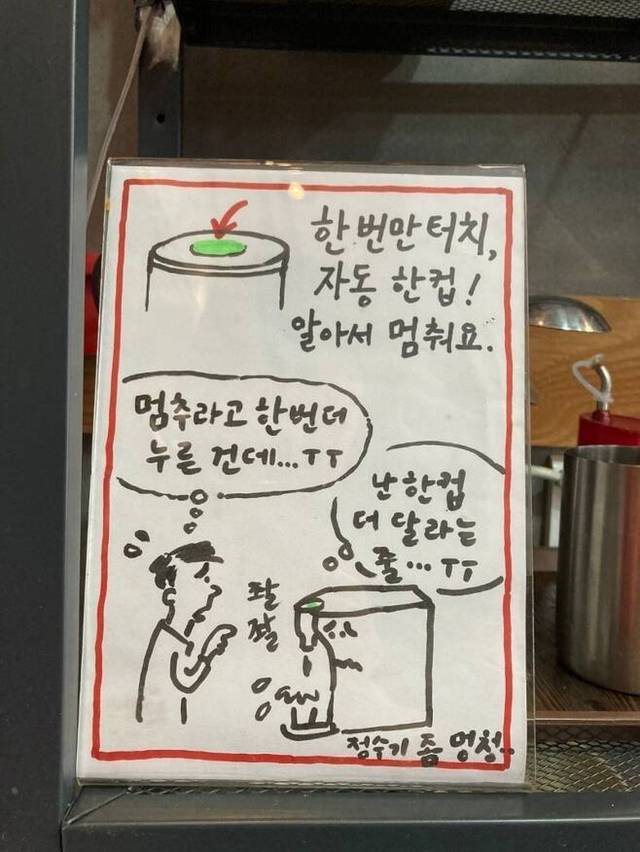 한번만터치,
자동 한컵!
알아서 멈춰요.
멈추라고 한번더
누른 건데...ㅜㅜ
난 한컵
더 달라는
줄...ㅜㅜ
콸
콸
정수기 좀 멍청..